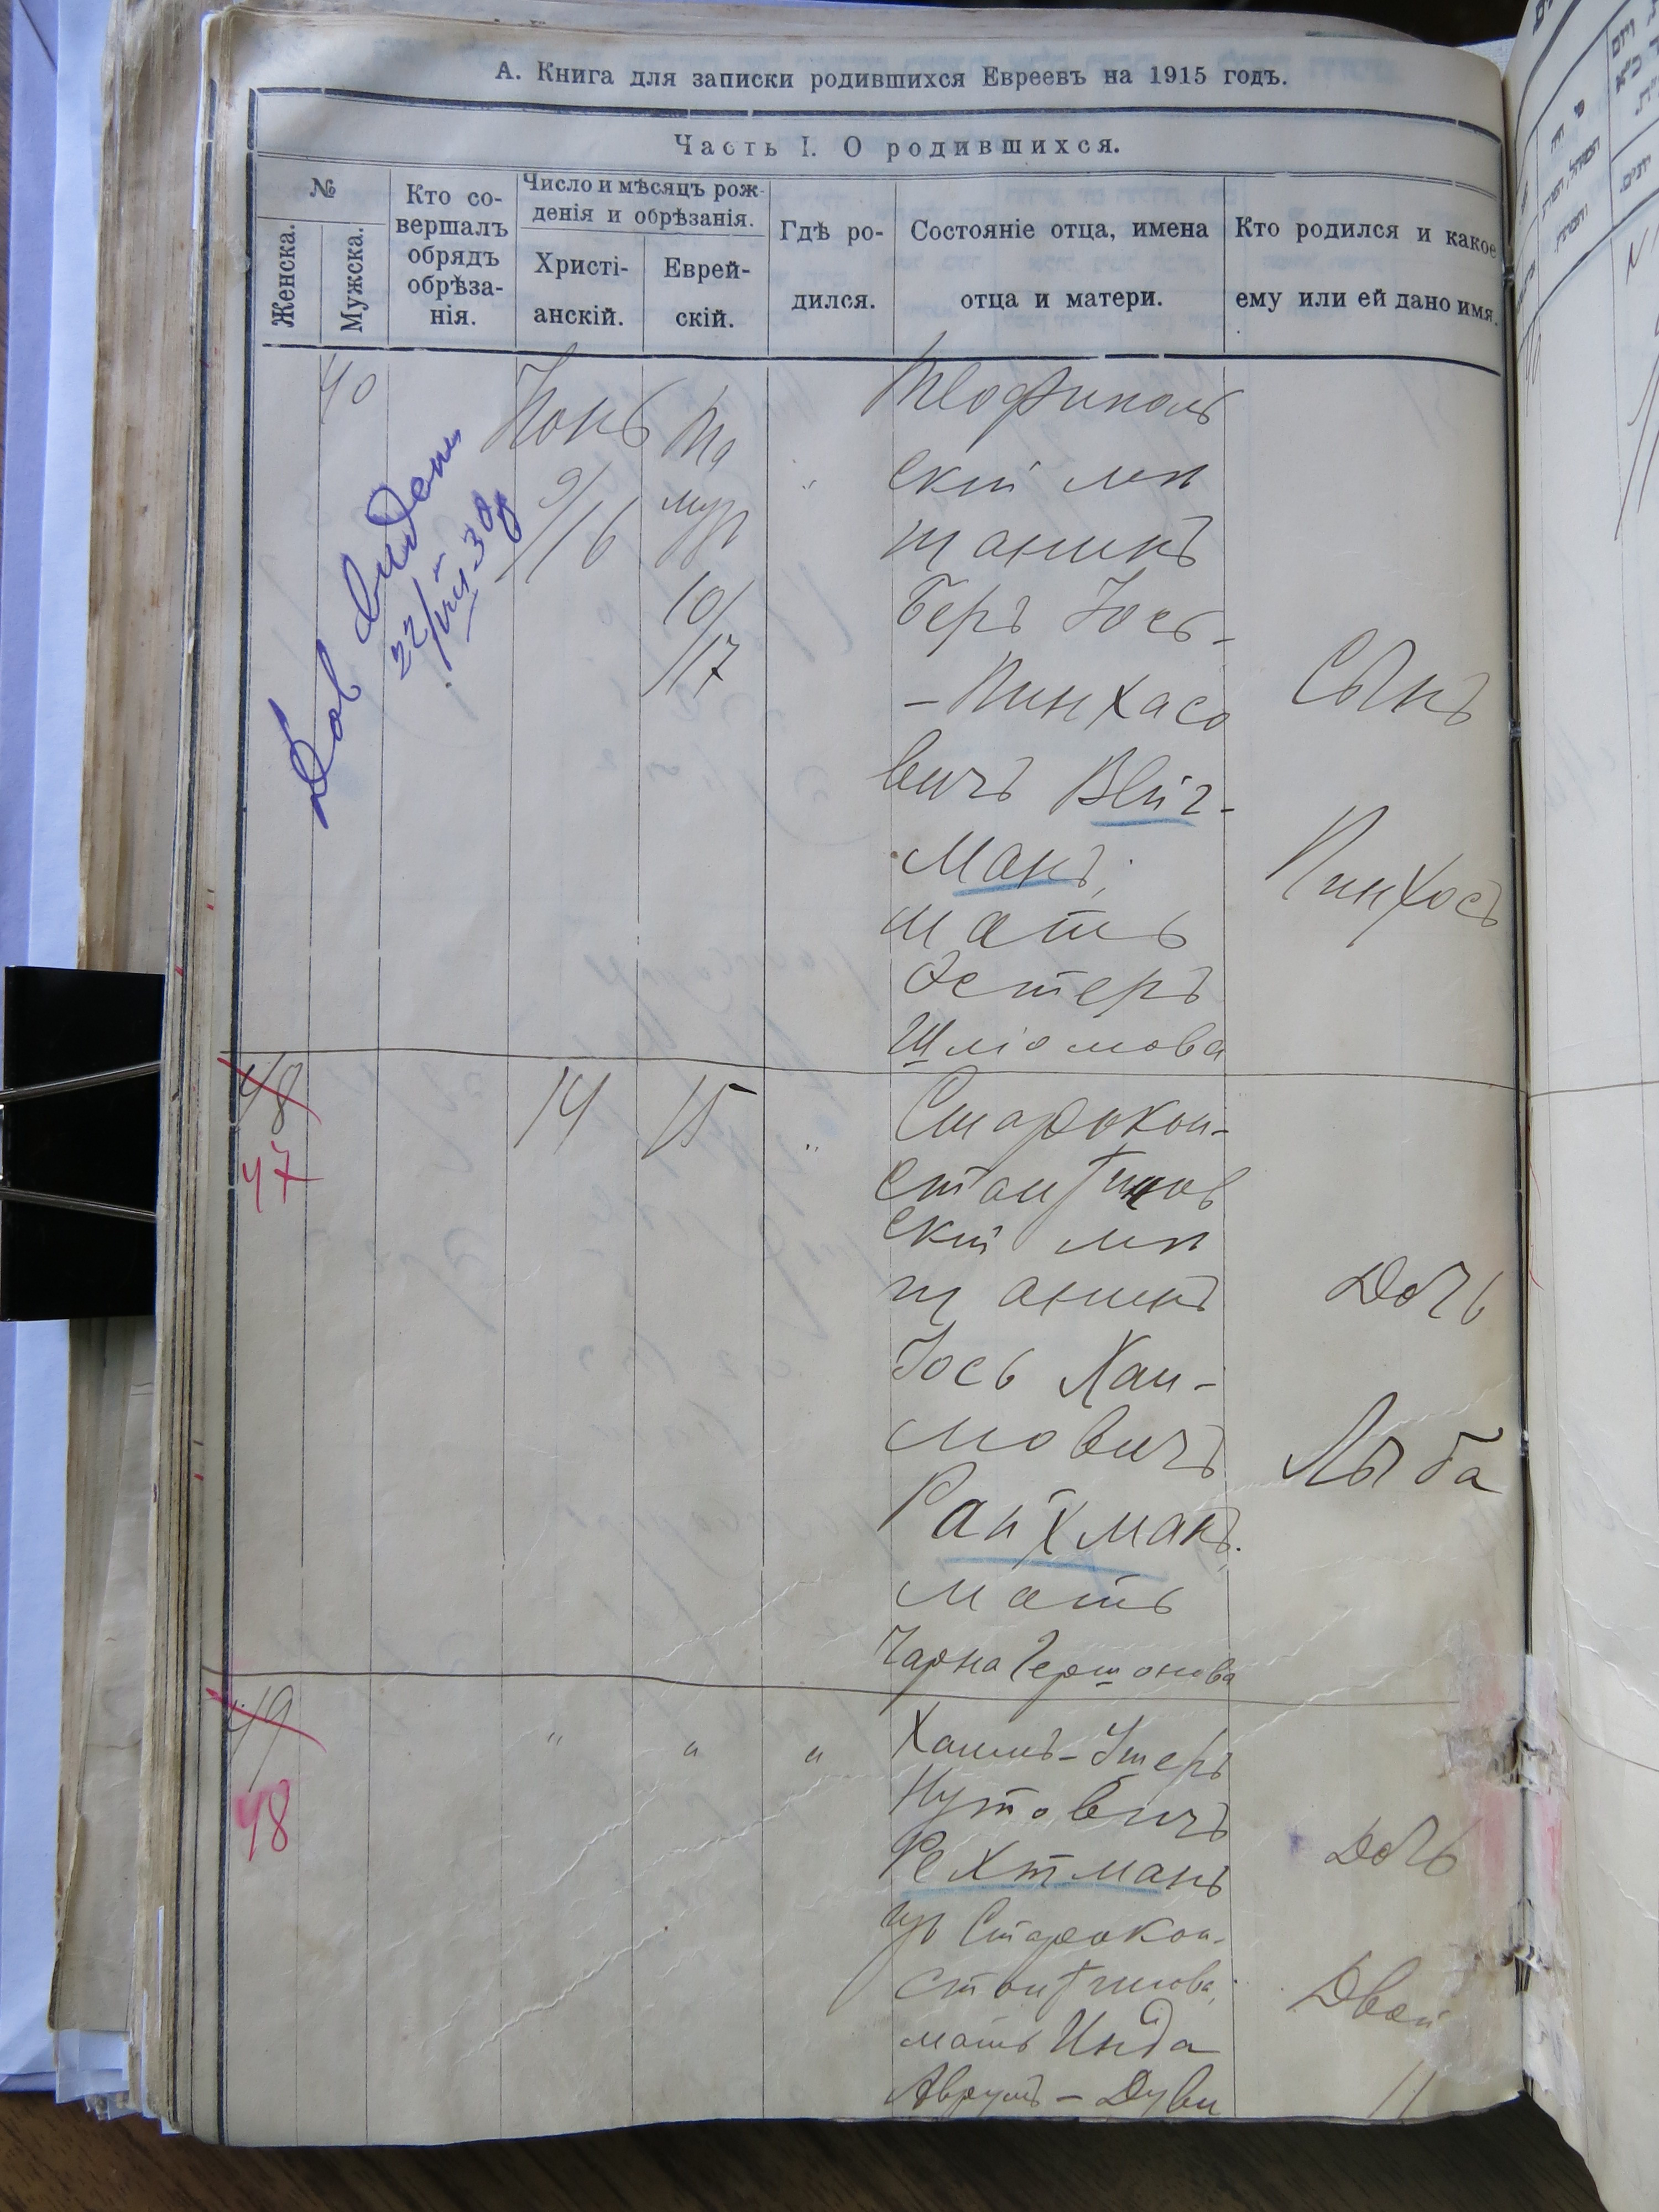 А. Книга для записки родившихся Евреевъ на 1915 годъ.
Часть I. О родившихся.
№
Женска.
Мужска.
Кто со-
вершалъ
обрядъ
обрѣза-
нія.
Число и мѣсяцъ рож-
денія и обрѣзанія.
Христі-
анскій.
Еврей-
скій.
Гдѣ ро-
дился.
Состояніе отца, имена
отца и матери.
Кто родился и какое
ему или ей дано имя.
40
22/VIII-30
Іюнь
9/16
Та
муз
10/17
"
Теофиполь
скій мѣ
щанинъ
Беръ Іось-
-Пинхасо
вичъ Вейг-
манъ,
мать
Эстеръ
Шліомова
Сынъ
Пинхосъ
48
47
14
15
"
Старокон-
стантинов
скій мѣ
щанинъ
Іось Хаи-
мовичъ
Райхманъ.
мать
Чарна Гершонова
Дочь
Лыба
49
48
"
"
"
Хаимъ-Утеръ
Нутовичъ
Рехтманъ
изъ Старокон-
стантинова,
мать Инда
Аврумъ-Дуви
Дочь